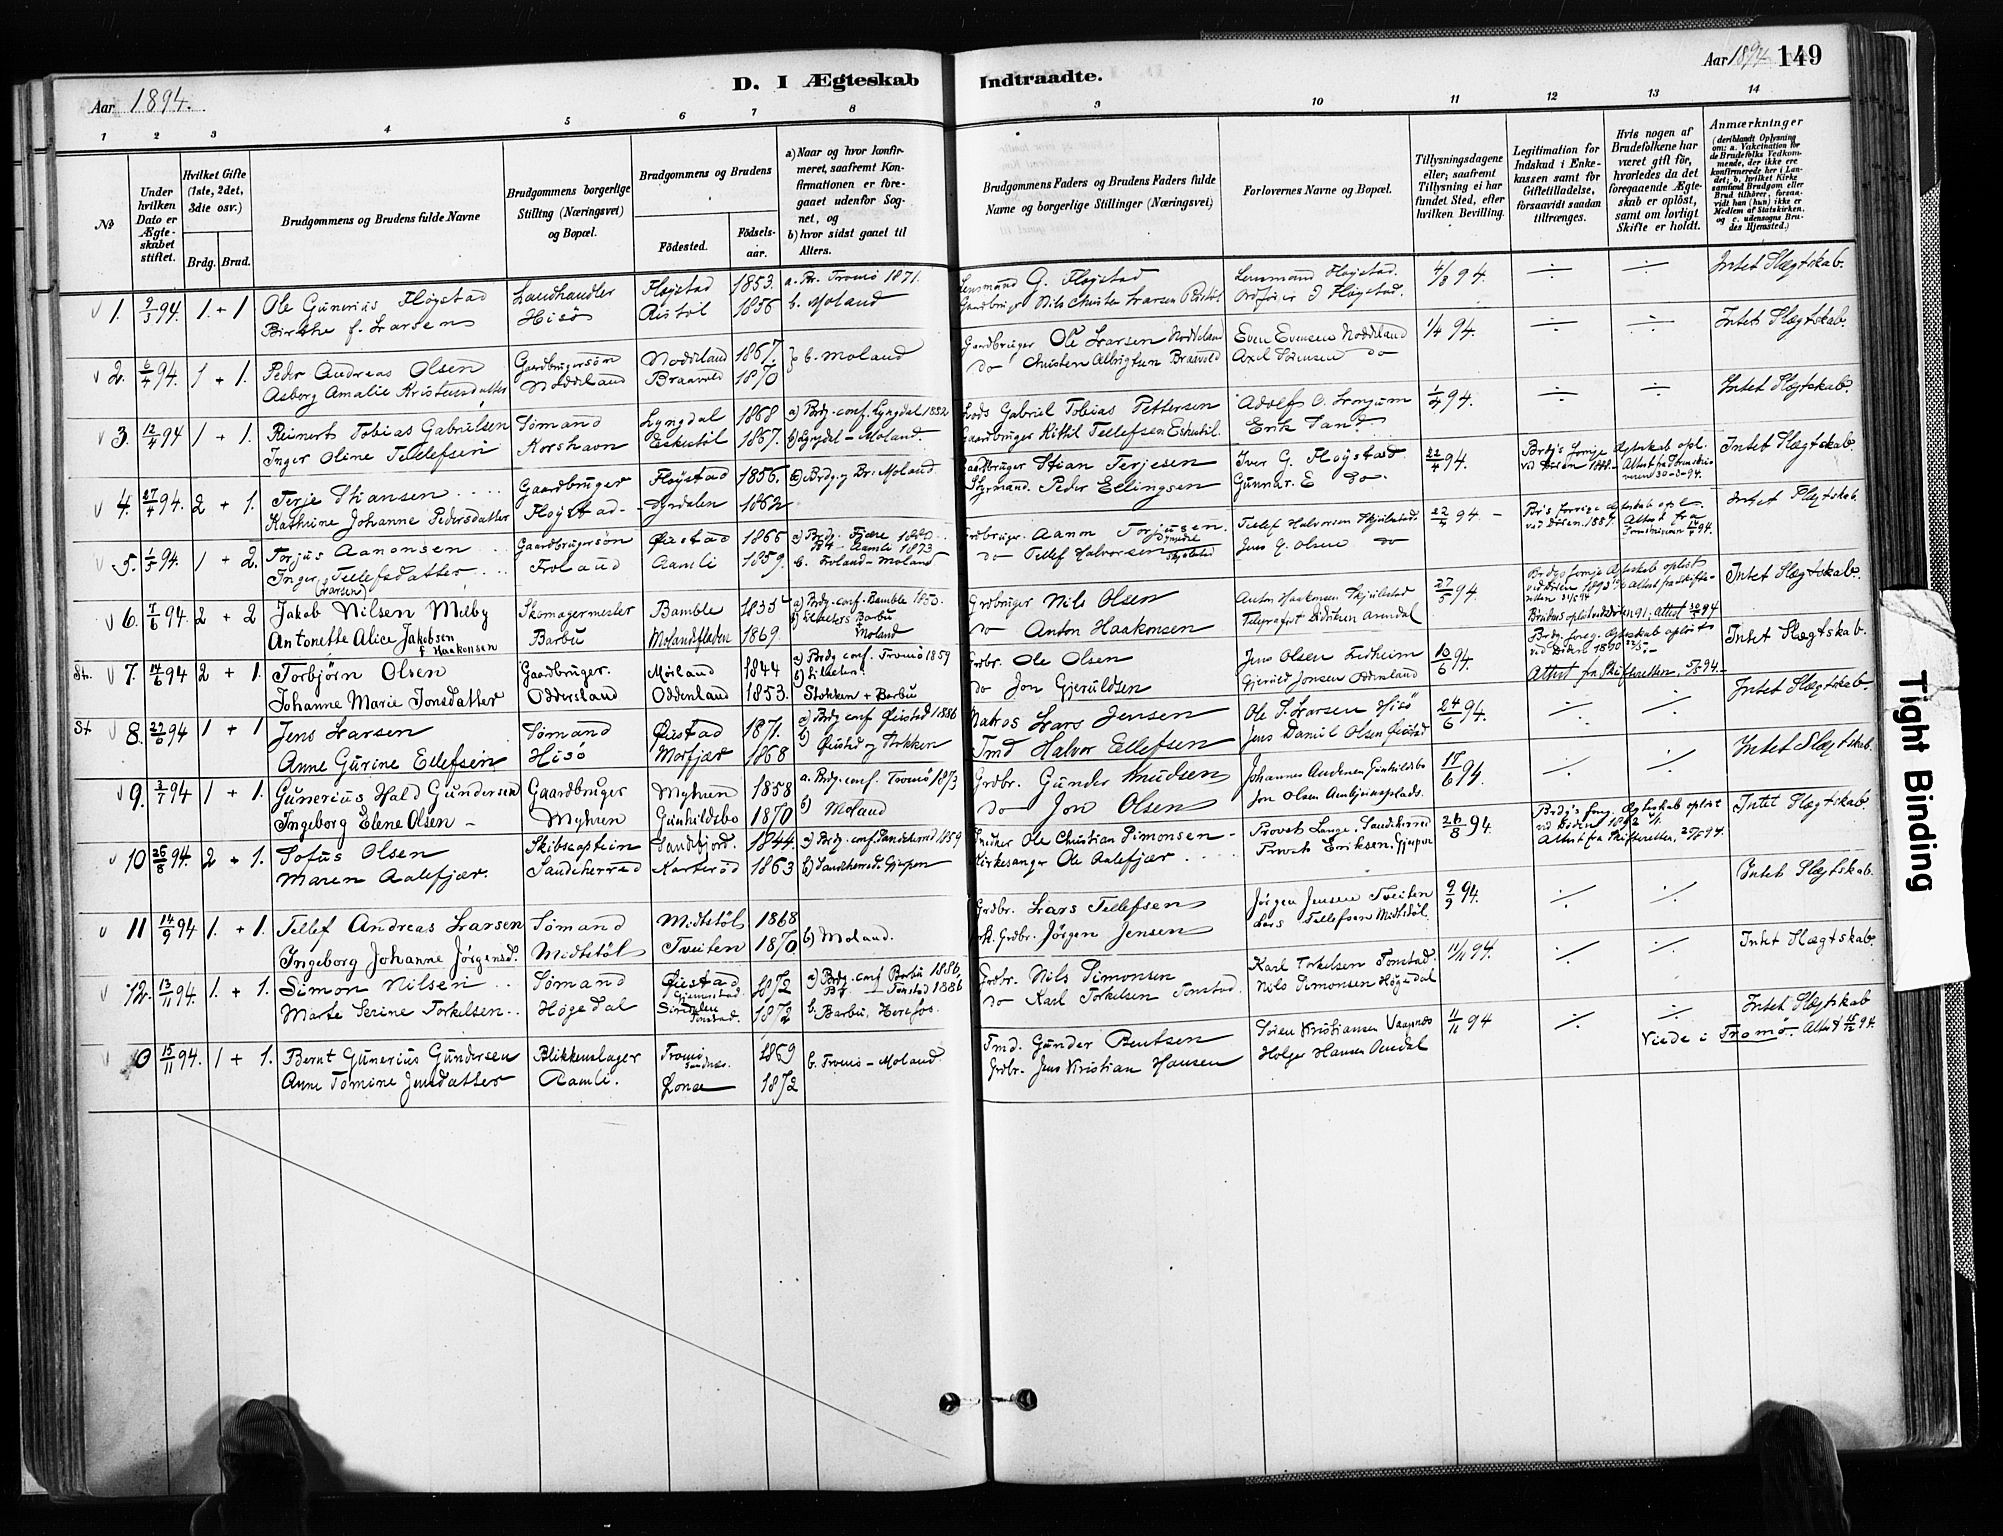 Aar 1894.
D. I Ægteskab Indtraadte.
Aar 1894. 149
1 2 3 4 5 6 7 8 9 10 11 12 13 14
No
Under hvilken Dato er Ægteskabet stiftet.
Hvilket Gifte (1ste, 2det, 3die osv.)
Brdg. Brud.
Brudgommens og Brudens fulde Navne
Brudgommens borgerlige Stilling (Næringsvei) og Bopæl.
Brudgommens og Brudens
Fødested.
Fødselsaar.
a) Naar og hvor konfirmeret, saafremt Konfirmationen er foregaaet udenfor Sognet, og
b) hvor sidst gaaet til Alters.
Brudgommens Faders og Brudens Faders fulde Navne og borgerlige Stillinger (Næringsvei)
Forlovernes Navne og Bopæl.
Tillysningsdagene eller; saafremt Tillysning ei har fundet Sted, efter hvilken Bevilling.
Legitimation for Indskud i Enkekassen samt for Giftetilladelse, forsaavidt saadan tiltrænges.
Hvis nogen af Brudefolkene har været gift før, hvorledes da det foregaaende Ægteskab er opløst, samt om lovligt Skifte er holdt.
Anmærkninger
(deriblandt Oplysning om: a. Vakcination for de Brudefolks Vedkommende, der ikke ere konfirmerede her i Landet; b. hvilket Kirkesamfund Brudgom eller Brud tilhører, forsaavidt han (hun) ikke er Medlem af Statskirken, og c. udensogns Brudes Hjemsted.)
1. 2/3 94. 1. + 1 Ole Gunerius Fløystad Landhandler Fløystad 1853. a. Br. Tromø 1871. Lensmand G. Fløystad Lensmand Fløystad. 4/3 94. Intet Slægtskab.
Birthe f. Larsen Hisö Ristöl 1856 b. Moland Gaardbruger Nils Christen Larsen Ristöl Ordfører Fløystad.
2. 6/4 94. 1 + 1. Peder Andreas Olsen Gaardbrugersön Noddeland 1867. b. Moland Gaardbruger Ole Larsen Noddeland Even Evensen Noddeland 1/4 94. Intet Slægtskab.
Asborg Amalie Kristensdatter Noddeland Braavold 1870 do Christen Braavold Axel Sörensen do
3. 12/4 94 1 + 1. Reinert Tobias Gabrielsen Sömand Lyngdal 1868 a) Brdg. conf. Lyngdal 1882 Lods Gabriel Tobias Pettersen Adolf O. Longum 1/4 94. Intet Slægtskab.
Inger Oline Tellefsen Korshavn Eskestil 1867. b) Lyngdal - Moland. Gaardbruger Kittil Tellefsen Eskestil. Erik Sand
4. 27/4 94. 2 + 1. Terje Stiansen Gaardbruger Fløystad 1856. Brdg. og Br. Moland. Gaardbruger Stian Terjesen Iver G. Fløystad 22/4 94. Brdg's forrige Ægteskab opl. Intet Slægtskab.
Kathrine Johanne Pedersdatter Fløystad - 1862 Styrmand. Peder Ellingsen Gunnar E do. ved Döden 1888. 30-3-94.
5. 1/5 94. 1 + 2. Torjus Aanonsen Gaardbrugersön Øiestad 1866 a) Brdg. Fjære Gdbruger. Aanon Torjusen. Tellef Halvorsen Skjulestad. 22/4 94 - Br's forrige Ægteskab opl. Intet Slægtskab
Inger Tellefsdatter (Larsen) Froland Aamli 1859. Br. Aamli 1873 b. Froland - Moland do Tellef Halvorsen Jens G. Olsen do ved Döden 1887. Attest fra
6. 7/6 94. 2 + 2 Jakob Nilsen Melby Skomagermester Bamble 1835 a) Brdg. conf. Bamble Grdbruger Nils Olsen Anton Haakonsen 27/5 94. Intet Slægtskab.
Antonette Alice Jakobsen f. Haakonsen Barbu Molandsladen 1869 Barbu Moland do Anton Haakonsen Telegrafist Didriksen Arendal
St. 7. 14/6 94 2 + 1. Torbjørn Olsen Gaardbruger. Mørland 1844 a) Brdg. conf. Tromö 1859 Grdbr. Ole Olsen Jens Olsen 10/6 94. Brdg. foreg. Ægteskab opløst Intet Slægtskab.
Johanne Marie Jonsdatter Oddersland Oddersland 1853. Stokken + Barbu do Jon Gjeruldsen Gjeruld Jonsen Oddersland ved Döden 1890 Attest fra Skifteretten. 5/6 94.
St 8. 27/6 94 1 + 1 Jens Larsen Sömand Øiestad 1871. a) Brdg. conf Øiestad 1886 Matros Lars Jensen Ole S. Larsen Hisö 24/6 94. Intet Slægtskab.
Anne Gurine Ellefsen Hisö Morfjær 1868 b) Øiestad og Stokken Tmd Halvor Ellefsen Jens Daniel Olsen Øiestad
9. 3/7 94 1 + 1. Gunerius Hald Gundersen Gaardbruger Myhren 1858 a. Brdg. conf. Tromö 1873 Grdbr. Gunder Knudsen Johannes Andersen Gunhildsbo 17/6 94. Intet Slægtskab.
Ingeborg Elene Olsen - Myhren Gunhildsbo 1870 b) Moland do Jon Olsen Jon Olsen
10 26/8 94. 2 + 1. Sofus Olsen Skibscaptein Sandefjord. 1844. a) Brdg. conf. Sandeherred 1859 Snidker Ole Christian Simonsen - Provst Lange. Sandeherred 26/8 94. Brdg's foreg. Ægteskab opløst Intet Slægtskab.
Maren Aalefjær. Sandeherred Karterød 1863 b) Sandeherred. Gjerpen Kirkesanger Ole Aalefjær Provst Eriksen. Gjerpen ved Döden 1892 Attest fra Skifteretten.
11 14/9 94 1. + 1. Tellef Andreas Larsen Sömand Midtstöl 1868 b) Moland. Grdbr. Lars Tellefsen Jörgen Jensen Tveiten 9/9 94. Intet Slægtskab.
Ingeborg Johanne Jørgensd. Midtstöl Tveiten 1870 Grdbr. Jørgen Jensen Lars Tellefsen Midtstöl.
12. 13/11 94. 1. + 1. Simon Nilsen Sömand Øiestad 1872 a) Brdg. conf Barbu 1886, Grdbr. Nils Simonsen Karl Torkelsen Tonstad. 11/11 94. Intet Slægtskab.
Marte Serine Torkelsen. Högedal Sirdalen Tonstad. 1872 Br. - Tonstad 1886 b. Barbu, Herefos. do Karl Torkelsen Tonstad. Nils Simonsen Högedal
0 15/11 94. 1 + 1. Bernt Gunerius Gundersen Blikkenslager Tromö 1869 b. Tromö - Moland. Tmd. Gunder Bentsen Sören Kristiansen Vaagsnes 11/11 94 Intet Slægtskab
Anne Tomine Jensdatter Aamli. Longæ 1872 Grdbr. Jens Kristian Hansen Holger Hansen Arendal Viede i Tromö. Attest 15/12 94.
Tight Binding